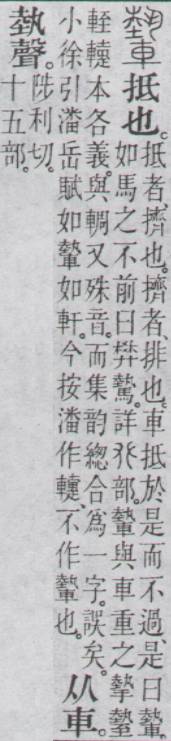 𨎌抵也。抵者、擠也。擠者、排也。車抵於是而不過、是曰𨎌。
如馬之不前曰樊驇。詳𠬜部。𨎌與車重之摯墊
輊轋本各義。與輖又殊音。而集韵總合爲一字。誤矣。
小徐引潘岳賦如𨎌如軒。今按潘作轋、不作𨎌也。从車。
執聲。陟利切。
十五部。